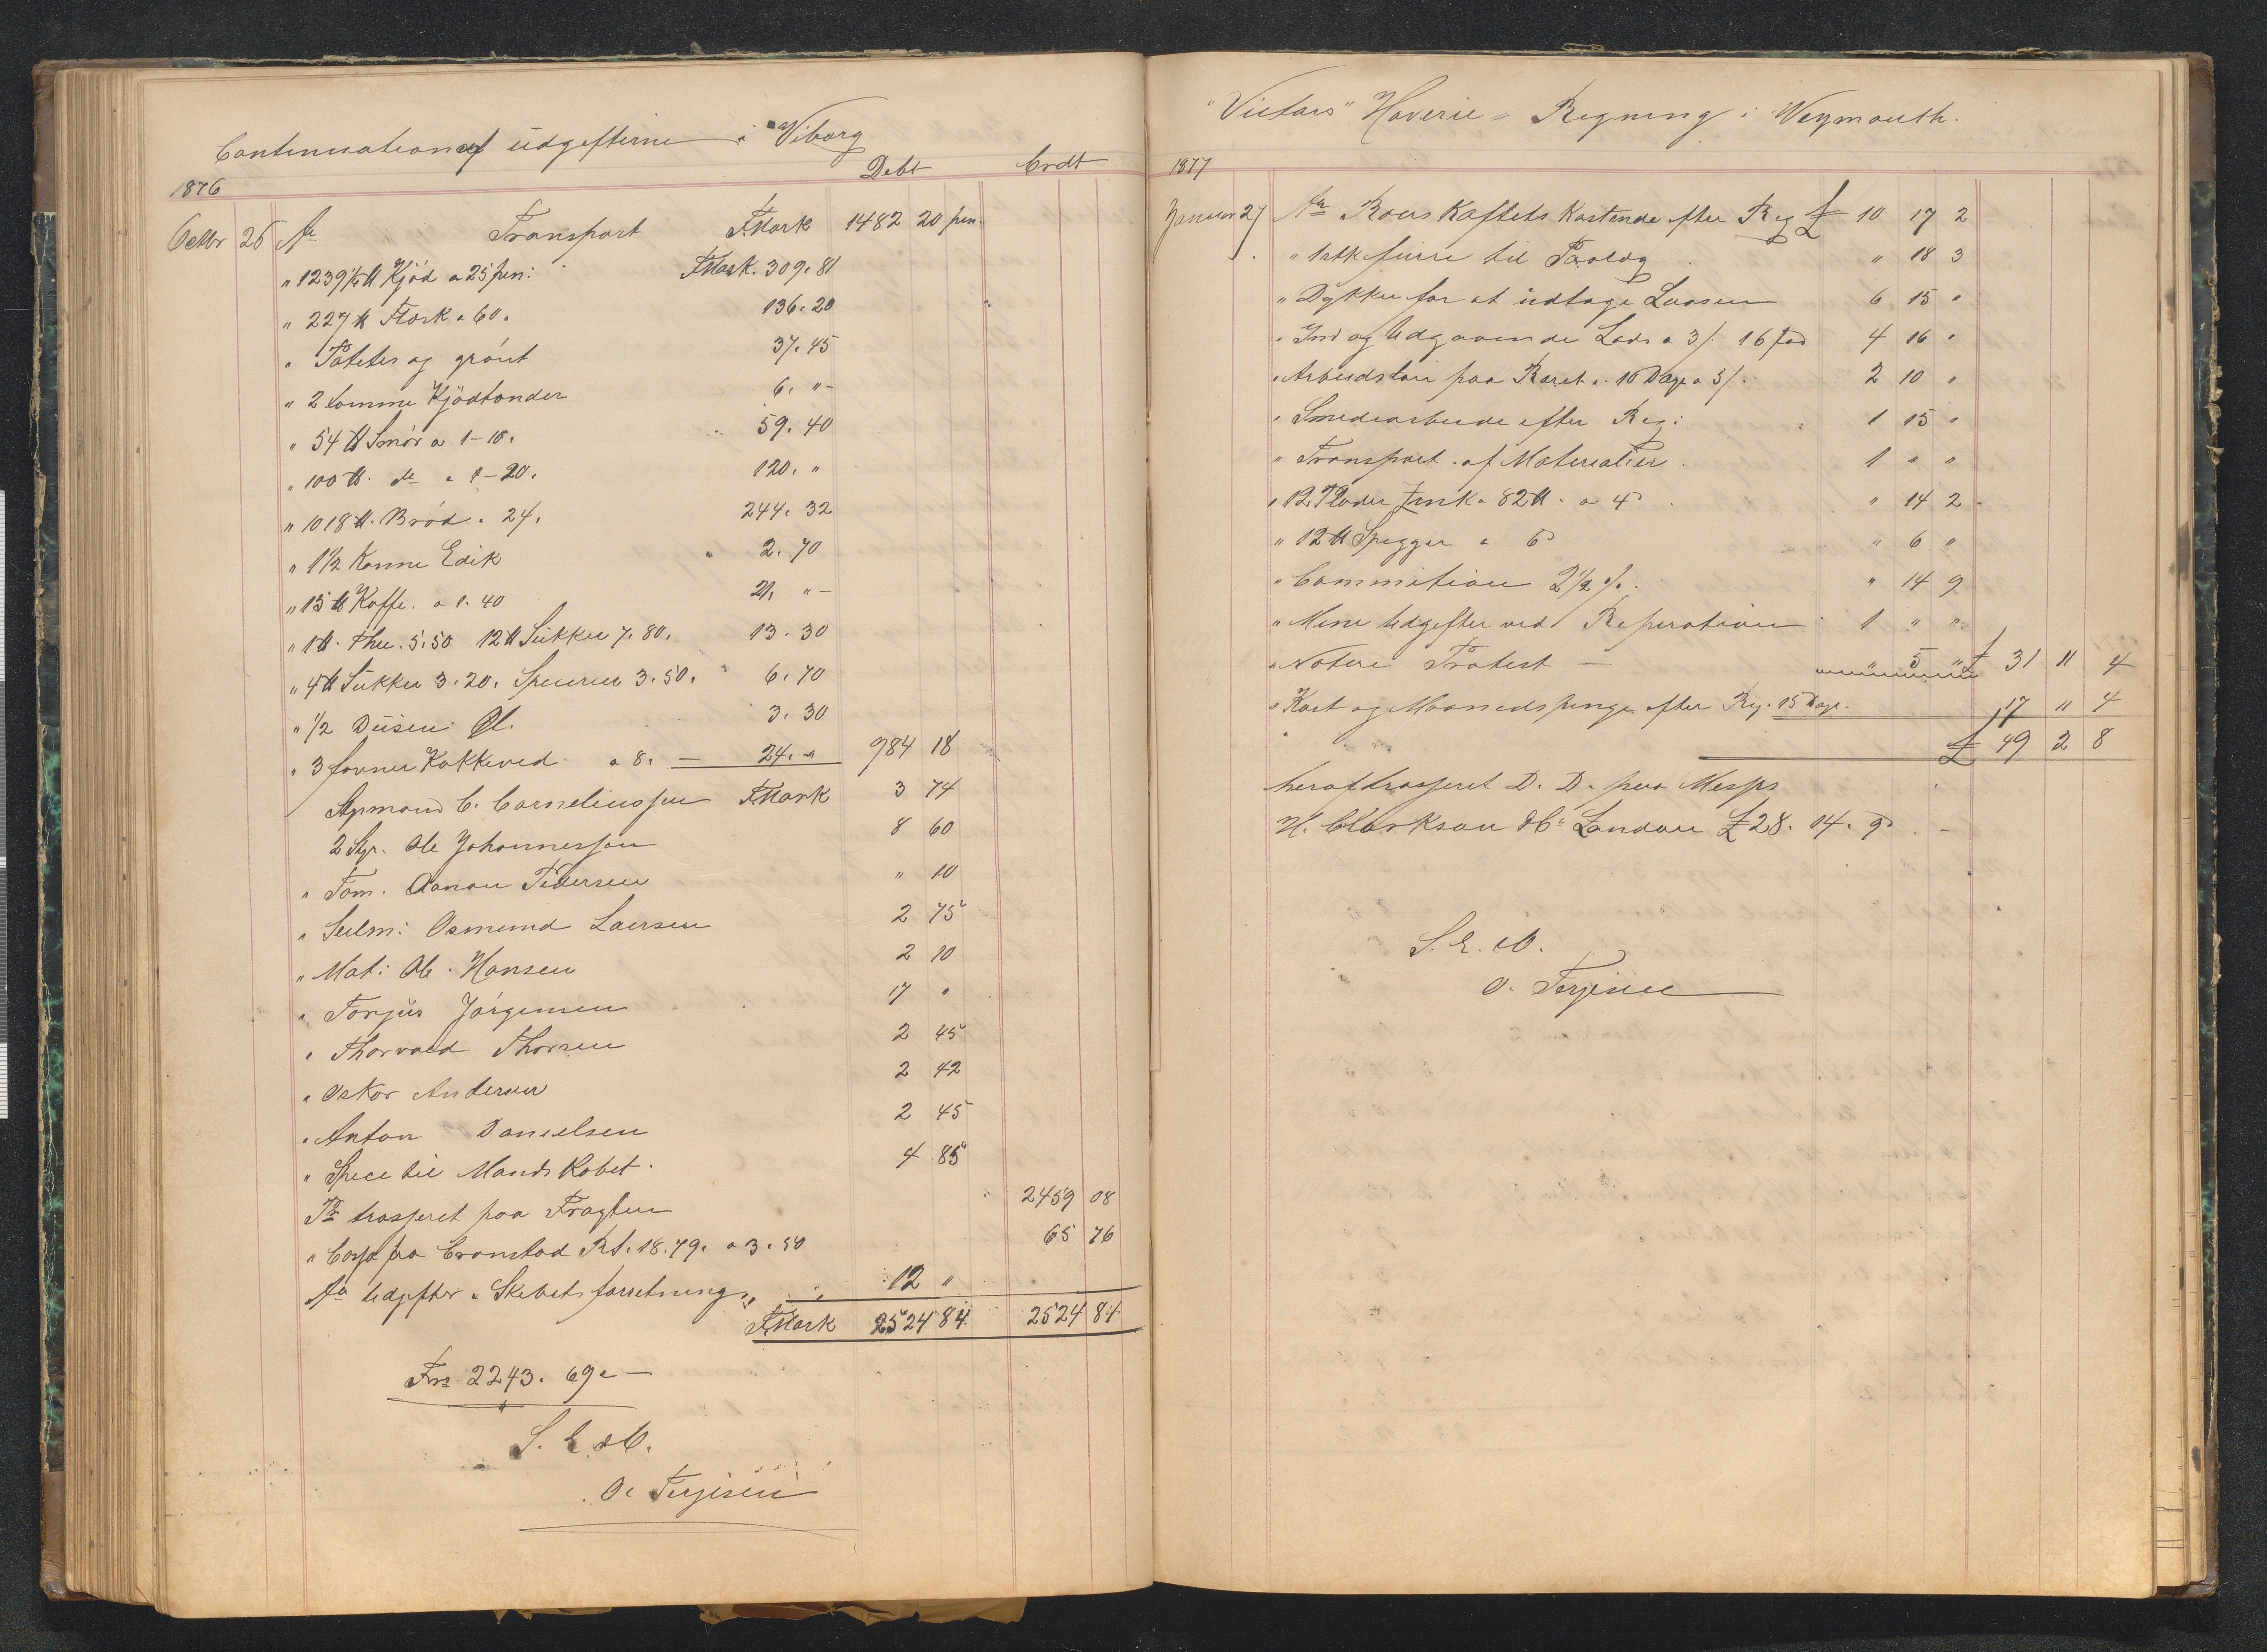 Continuation af üdgifterne i Viborg
Debt Crdt
1876
Octbr 26 An Transport FMark 1482 20 pen.
" 1239¼ ℔ Kjød a 25 pen: FMark. 309. 81
" 227 ℔ Flæsk a 60. 136. 20
" Poteter og grönt 37. 45
" 2 tomme Kjödtönder 6. " -
" 54 ℔ Smör a 1-10. 59. 40
" 100 ℔. do a 1-20. 120. "
" 1018 ℔. Bröd a 24. 244. 32
" 1½ Kanne Edik 2. 70
" 15 ℔ Kaffe. a 1. 40 21. " -
" 1 ℔. Thee. 5.50 12 ℔ Sükker 7.80. 13. 30
" 4 ℔ Sükker 3.20. Specerier 3.50. 6. 70
" ½ Düsin Øl. 3. 30
" 3 favner Kokkeved a 8. — 24. " 984 18
Styrmand C. Corneliussen FMark 3 74
2 Styr. Ole Johannessen 8 60
" Tøm. Aanon Pedersen " 10
" Seilm: Osmund Laersen 2 75
" Mat: Ole Hansen 2 10
" Torjüs Jørgensen 17 "
" Thorvald Thorsen 2 45
" Oskar Andersen 2 42
" Anton Danielsen 2 45
" Spece til Mandskabet. 4 85
Pr trasseret paa Fragten 2459 08
" Cassa fra Cronstad Rt. 18.79. a 3.50 65 76
An Udgifter i Skibets forretning 12 "
FMark 2524 84 2524 84
Frs 2243. 69. —
S. E. & O.
O. Terjesen
"Victors" Haverie = Regning i Weymouth.
1877
Januar 27 An Roerskaftets Kostende efter Reg £ 10 17 2
" 1 stk fürre til Paalæg " 18 3
" Dykker for at üdtage Laasen 6 15 "
" Ind og Udgaaende Lods a 3/. 16 fod 4 16 "
" Arbeidsløn paa Roret. 10 Dage a 5/. 2 10 "
" Smedearbeide efter Reg: 1 15 "
" Transport af Materialier 1 " "
" 12 Plader Zink a 82 ℔. a 4d " 14 2
" 12 ℔ Spigger a 6d " 6 "
" Commission 2½ %. " 14 9
" Mine Udgifter ved Reperation 1 " "
" Notere Protest — 5 " £ 31 11 4
" Kost og Maanedspenge efter Reg. 15 Dage. 17 11 4
£ 49 2 8
heraf trasseret D. D. paa Messrs
H. Clarkson & Co London £ 28. 14. 9d
S. E. & O.
O. Terjesen